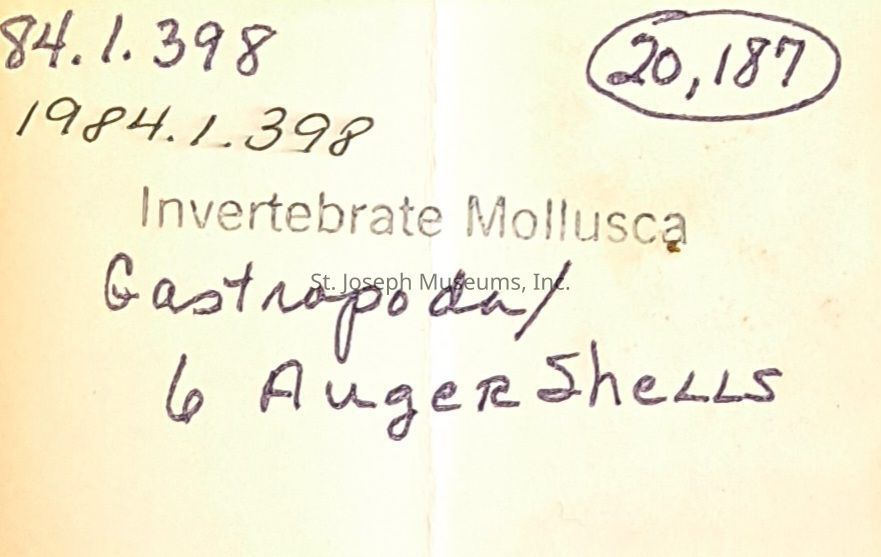 84.1.398
20,187
1984.1.398
Invertebrate Mollusca
St. Joseph Museums, Inc.
Gastropoda/
6 Auger Shells